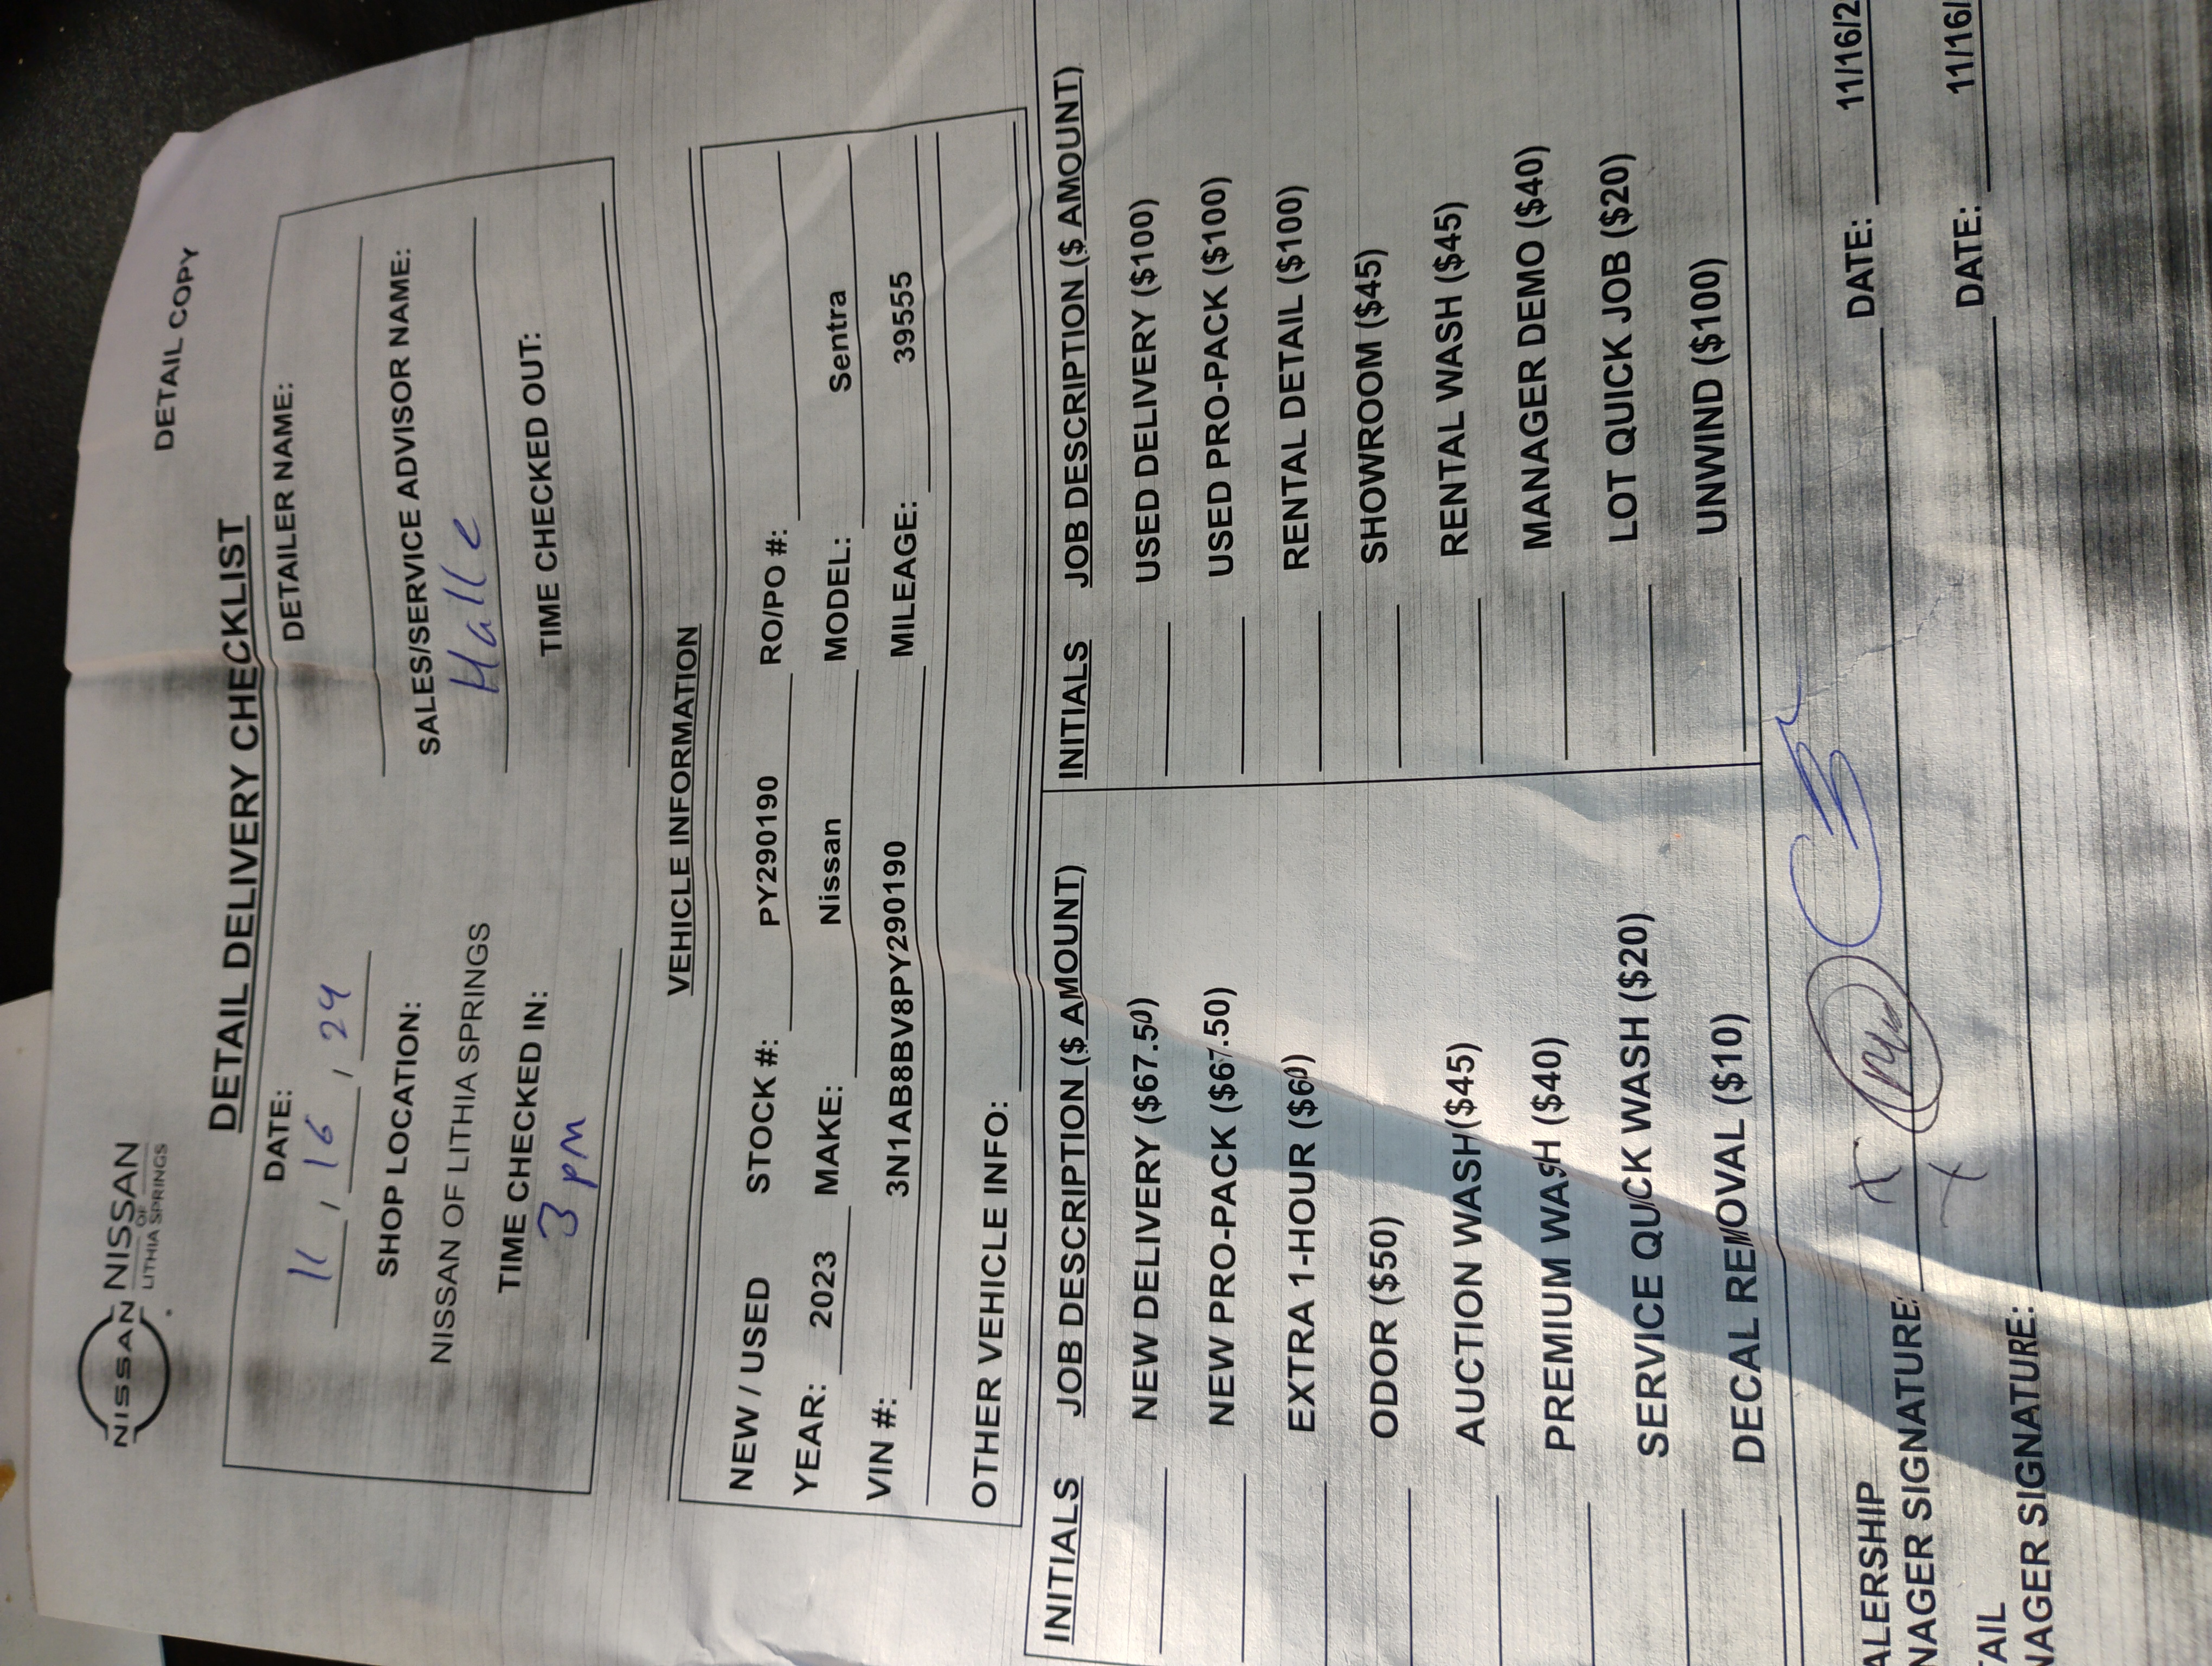 DETAIL COPY
NISSAN NISSAN
OF
LITHIA SPRINGS
DETAIL DELIVERY CHECKLIST
DATE: DETAILER NAME:
11 , 16 , 24
SHOP LOCATION: SALES/SERVICE ADVISOR NAME:
NISSAN OF LITHIA SPRINGS Halle
TIME CHECKED IN: TIME CHECKED OUT:
3 pm
VEHICLE INFORMATION
NEW / USED STOCK #: PY290190 RO/PO #:
YEAR: 2023 MAKE: Nissan MODEL: Sentra
VIN #: 3N1AB8BV8PY290190 MILEAGE: 39555
OTHER VEHICLE INFO:
INITIALS JOB DESCRIPTION ($ AMOUNT) INITIALS JOB DESCRIPTION ($ AMOUNT)
NEW DELIVERY ($67.50) USED DELIVERY ($100)
NEW PRO-PACK ($67.50) USED PRO-PACK ($100)
EXTRA 1-HOUR ($60) RENTAL DETAIL ($100)
ODOR ($50) SHOWROOM ($45)
AUCTION WASH($45) RENTAL WASH ($45)
PREMIUM WASH ($40) MANAGER DEMO ($40)
SERVICE QUICK WASH ($20) LOT QUICK JOB ($20)
DECAL REMOVAL ($10) UNWIND ($100)
ALERSHIP
NAGER SIGNATURE: X DATE: 11/16/2
TAIL
NAGER SIGNATURE: X DATE: 11/16/